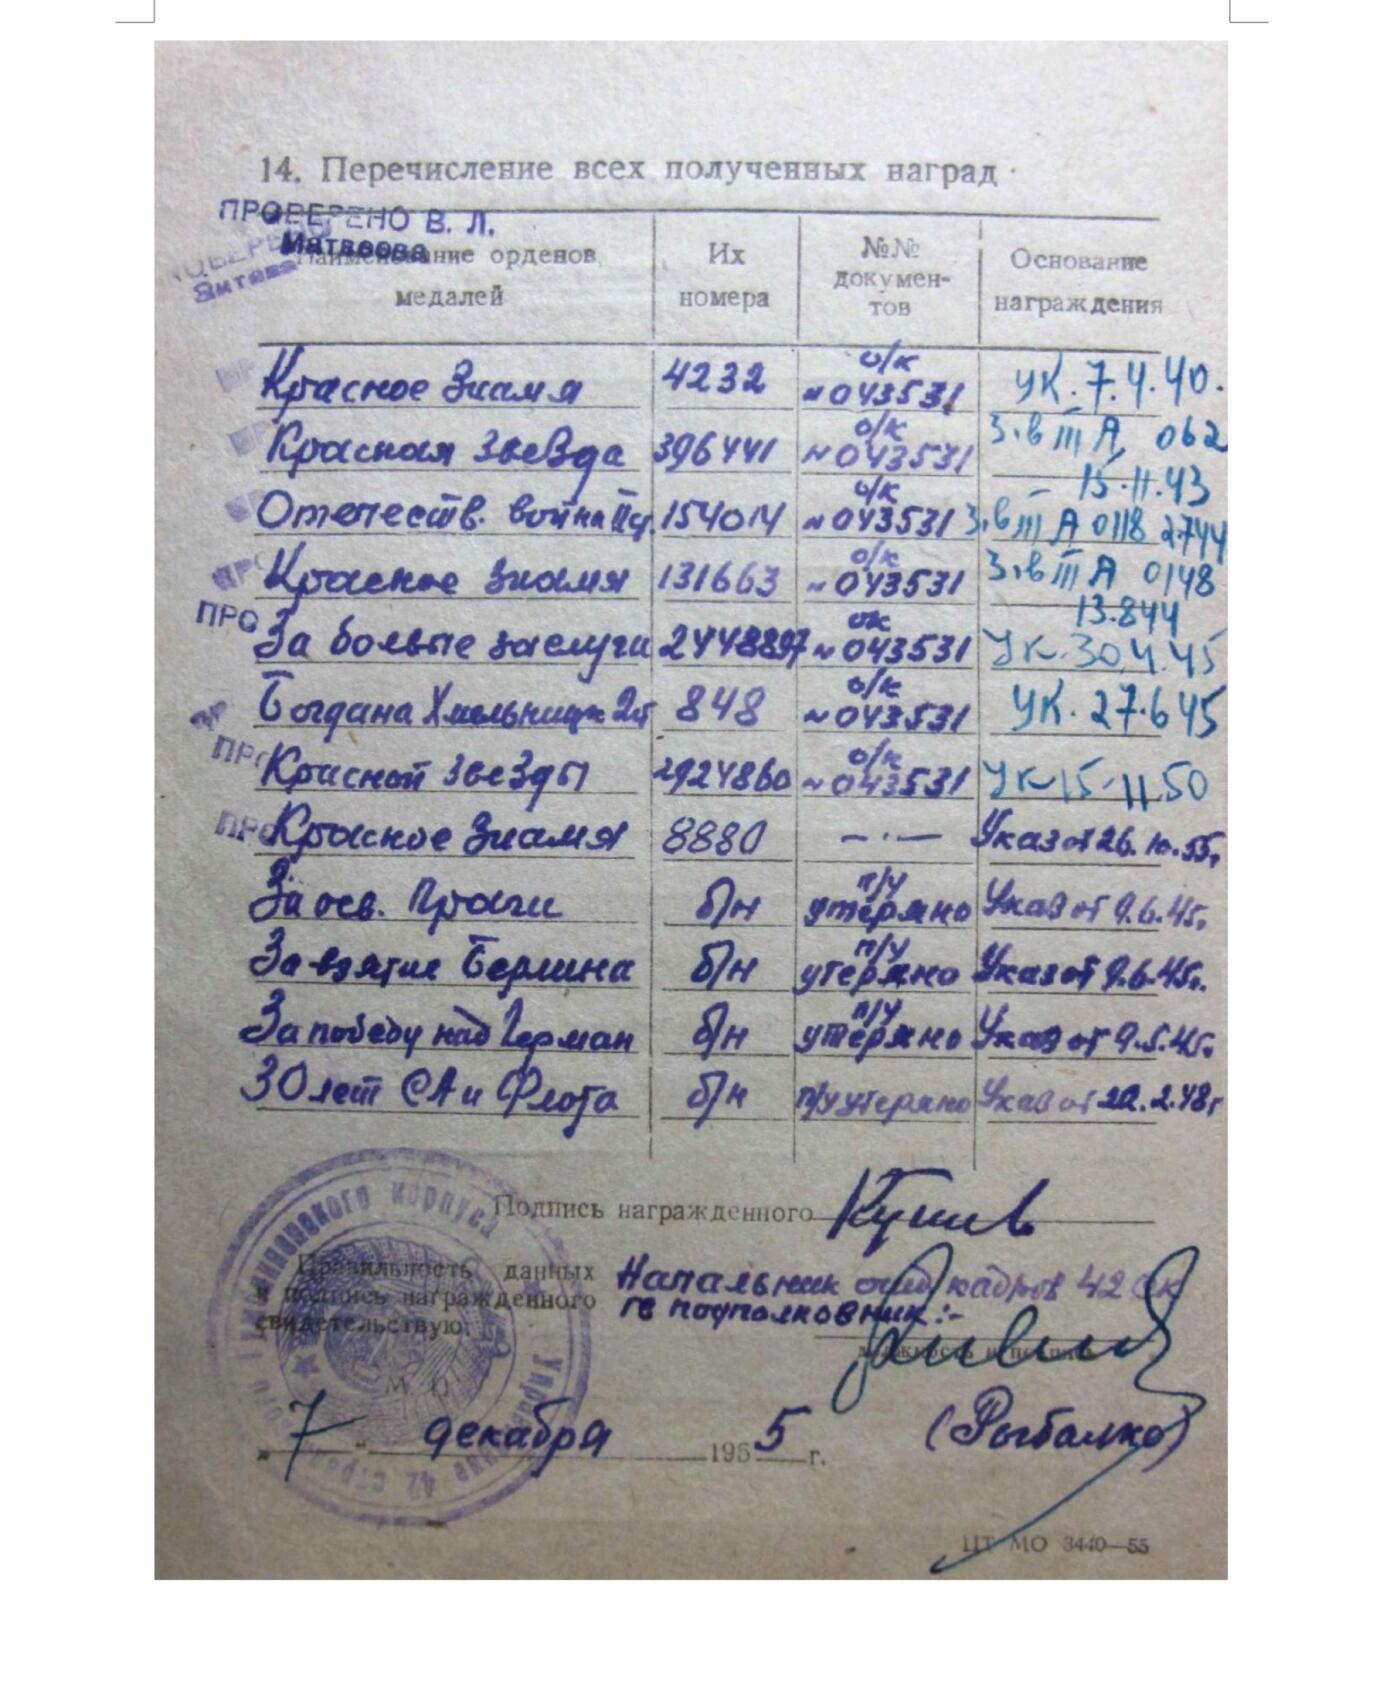 14. Перечисление всех полученных наград
ПРОВЕРЕНО В. Л.
Матвеева
Наименование орденов, медалей Их номера №№ докумен-тов Основание награждения
Красное Знамя 4232 о/к №043531 УК. 7.4.40.
Красная Звезда 396441 о/к №043531 З.в III А 062 15.11.43
Отечеств. война II ст. 154014 о/к №043531 З.в III А 0118 2744
Красное Знамя 131663 о/к №043531 З.в III А 0148 13.844
За боевые заслуги 2448897 ок №043531 УК. 30.4.45
Богдана Хмельницк 2ст 848 о/к №043531 УК. 27.6 45
Красной Звезды 2924860 о/к №043531 УК 15.11.50
Красное Знамя 8880 —·— Указ от 26.10.55г
За осв. Праги б/н п/у утеряно Указ от 9.6.45г.
За взятие Берлина б/н п/у утеряно Указ от 9.6.45г.
За победу над Герман б/н п/у утеряно Указ от 9.5.45г.
30 лет СА и Флота б/н п/у утеряно Указ от 22.2.48г
Подпись награжденного
Правильность данных
и подпись награжденного
свидетельствую.
Начальник отд кадров 42 ск
гв подполковник:-
должность и подпись
М. П.
(Рыбалко)
„ 7 " декабря 1955 г.
ЦТ МО 3440—55
корпуса
Управление 42 стрел